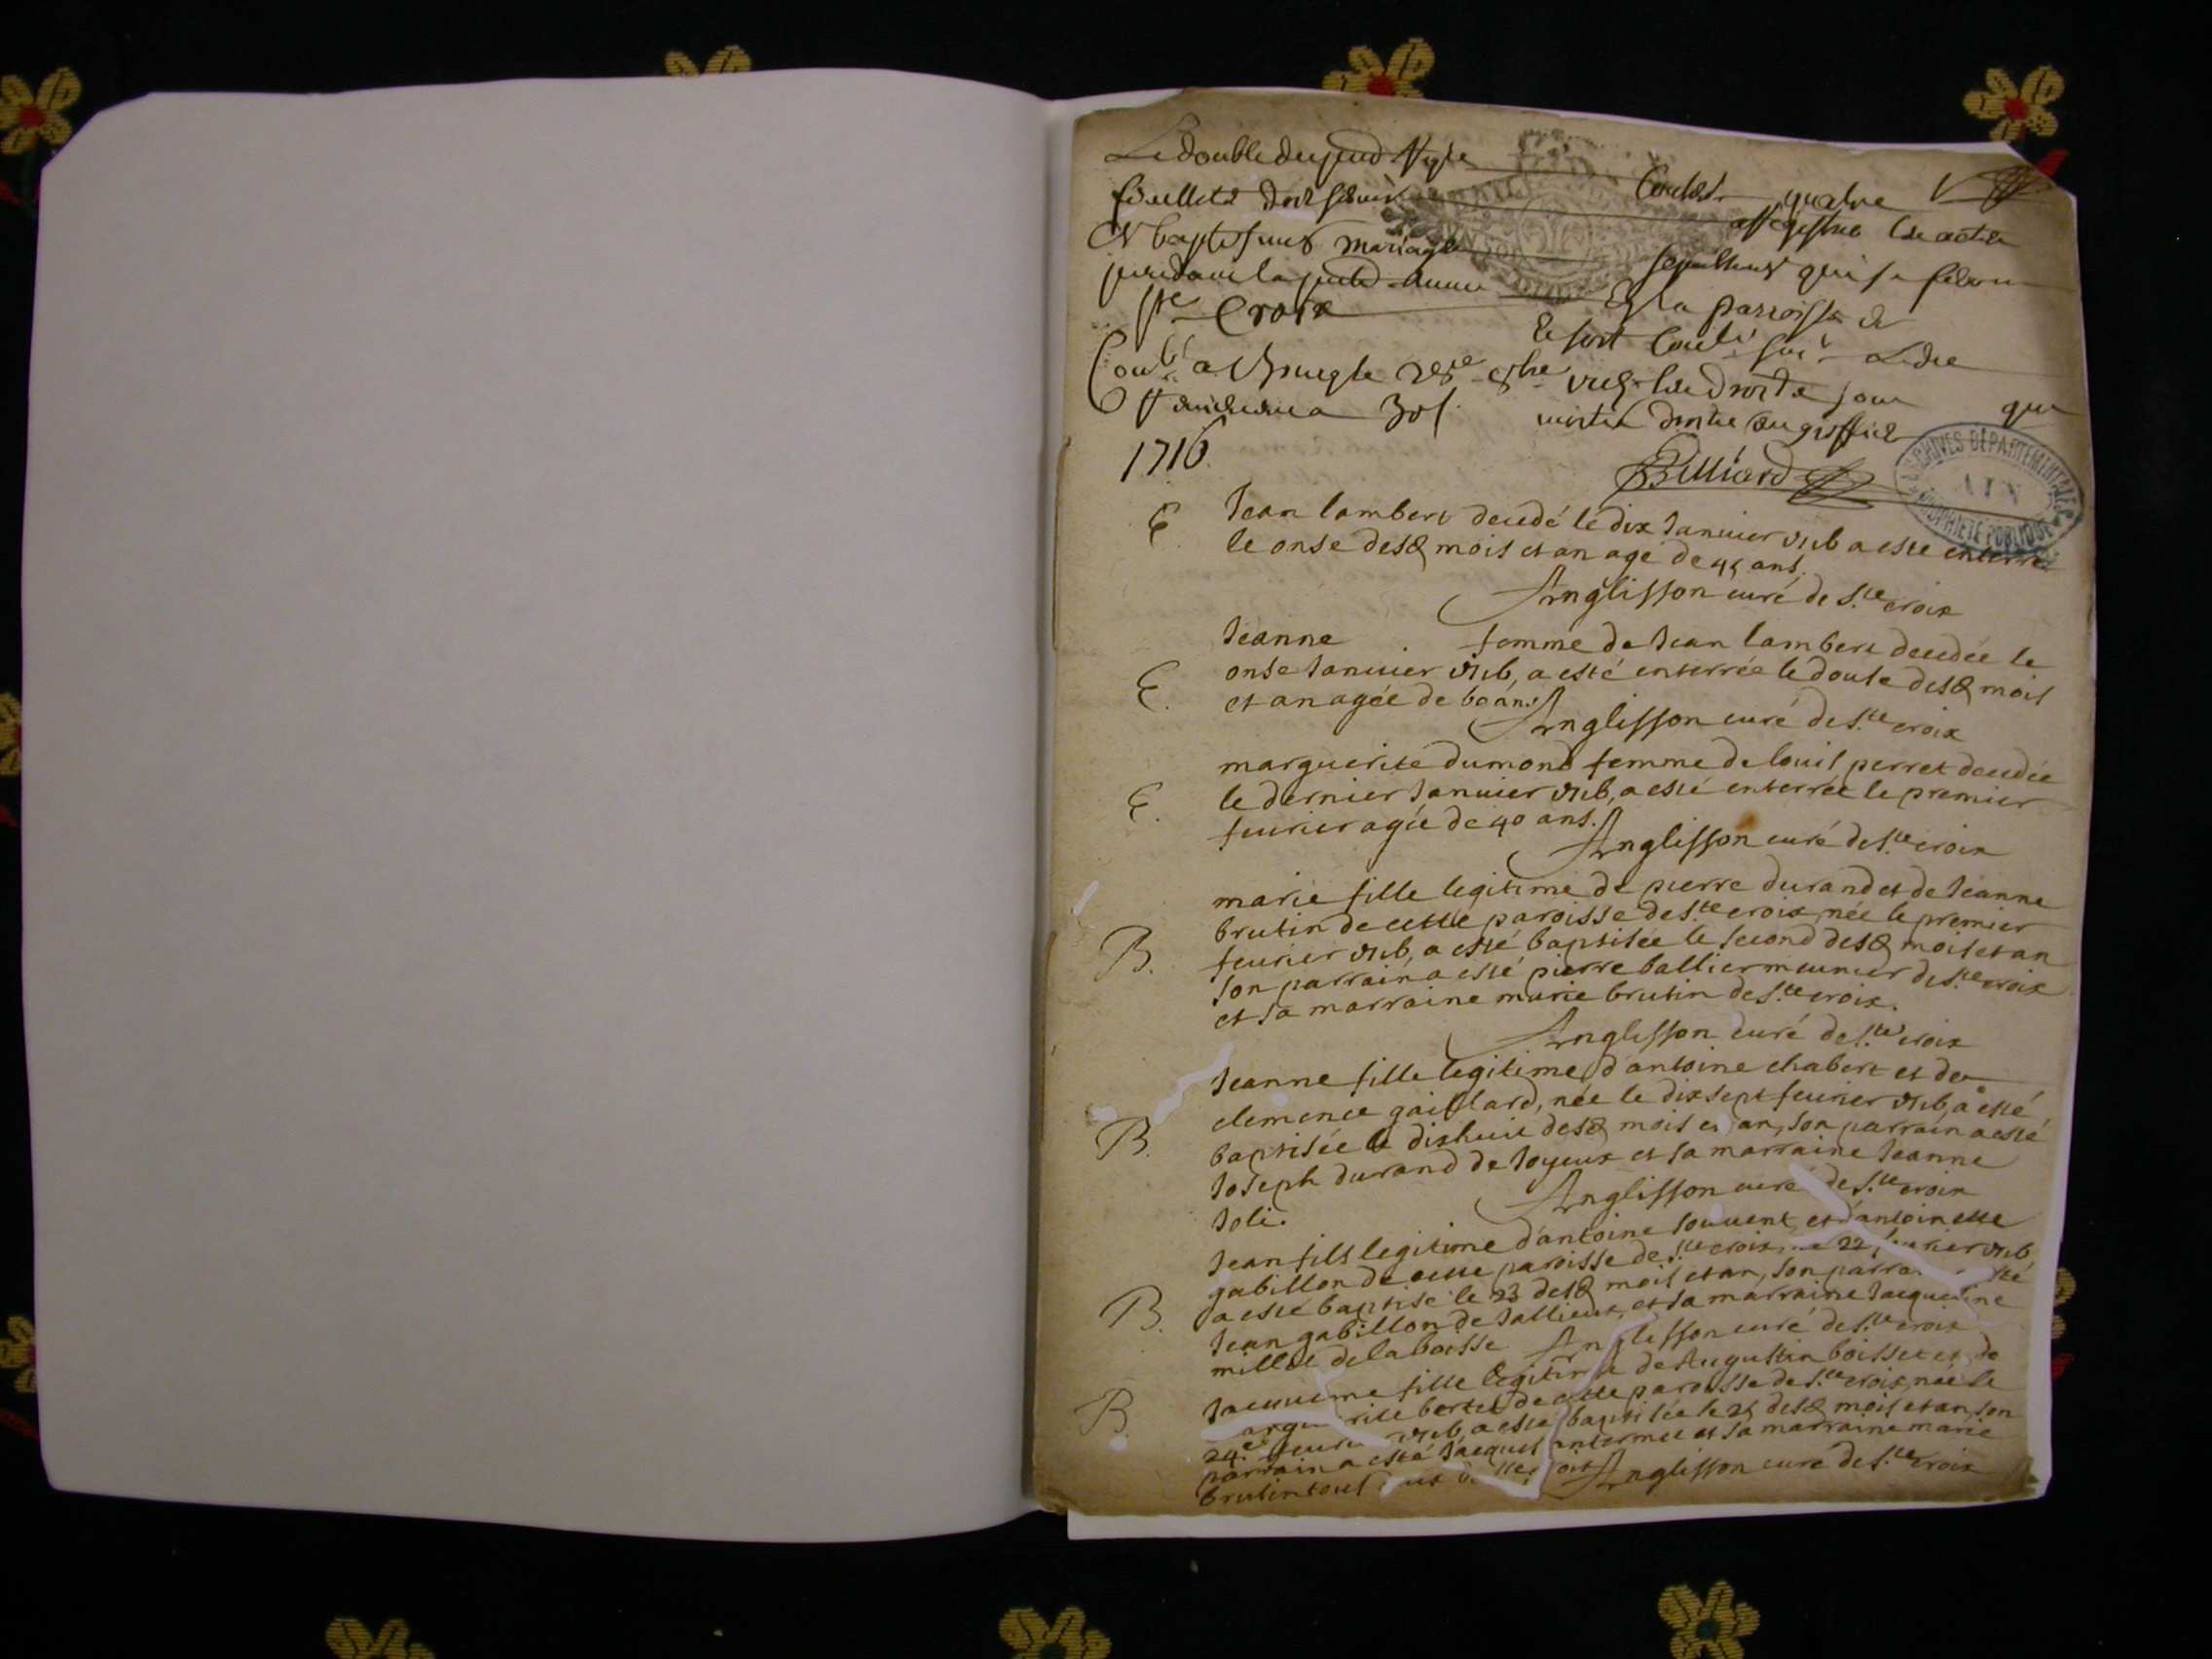 Le double du pnt Regre Contes. quatre
feuillets doit servir assegistrer les actes
de baptesmes mariages sepultures qui se feron
pendant la pnte Annee En la parroisse de
Ste Croix
1716.
Billiard
ARCHIVES DÉPARTEMENTALES
AIN
PROPRIÉTÉ PUBLIQUE
E. Jean lambert decedé le dix Januier 1716 a esté enterré
le onse desd mois et an agé de 45 ans.
Anglisson curé de Ste croix
Jeanne femme de Jean lambert decedée le
E. onse Januier 1716, a esté enterrée le douse desd mois
et an agée de 60 ans.
Anglisson curé de Ste croix
marguerite dumond femme de louis perret decedée
E. le dernier Januier 1716, a esté enterrée le premier
feurier agée de 40 ans.
Anglisson curé de Ste croix
marie fille legitime de pierre durand et de Jeanne
brutin de cette paroisse de Ste croix, née le premier
B. feurier 1716, a esté baptisée le second desd mois et an
son parrain a esté pierre ballier meunier de Ste croix
et sa marraine marie brutin de Ste croix.
Anglisson curé de Ste croix
Jeanne fille legitime d'antoine chabert et de
clemence gaillard, née le dixsept feurier 1716, a esté
B. baptisée le dixhuit desd mois et an, son parrain a esté
Joseph durand de Joyeux et sa marraine Jeanne
Joli.
Anglisson curé de Ste croix
Jean fils legitime d'antoine souuent et d'antoinette
gabillon de cette paroisse de Ste croix, 22 feurier 1716
B. a esté baptisé le 23 desd mois et an, son parra
Jean gabillon de Jallieux, et sa marraine Jacqueline
millet de la boisse Anglisson curé de Ste croix
B. fille legitime de Augustin boisset et de
bertet de cette paroisse de Ste croix, née le
24e feurier 1716, a esté baptisée le 25 desd mois et an, son
parrain a esté Jacques antermet et sa marraine marie
brutin tous Anglisson curé de Ste croix